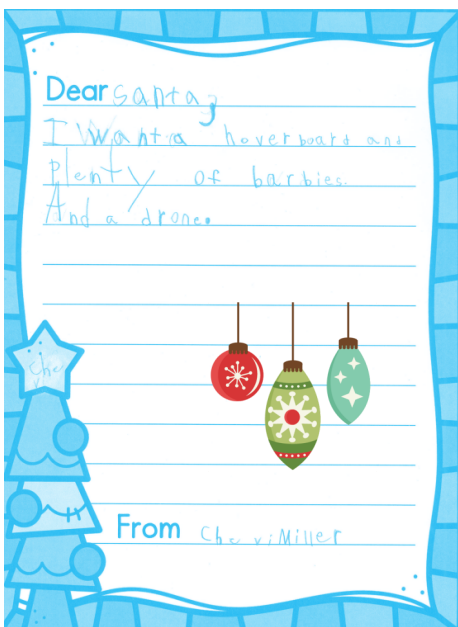 Dear santa,
I want a hoverboard and
plenty of barbies.
And a drone.
che
vi
From Chevi Miller